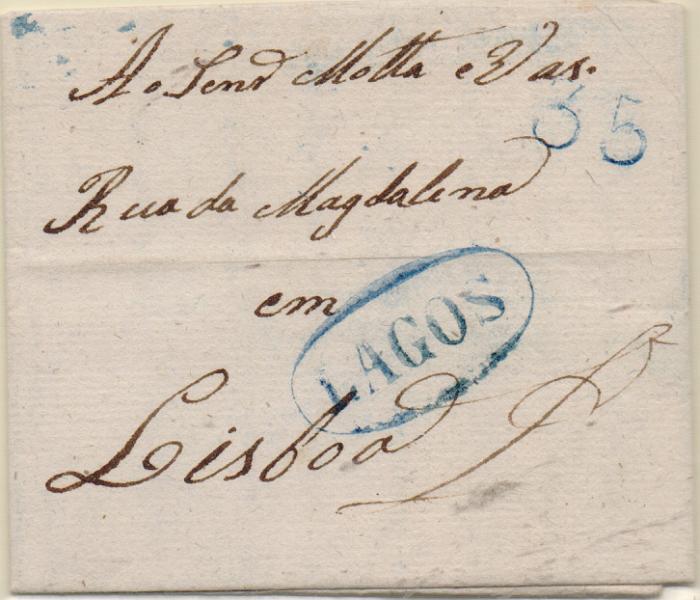 Ao Senr Motta e Vas.
35
Rua da Magdalena
em
LAGOS
Lisboa